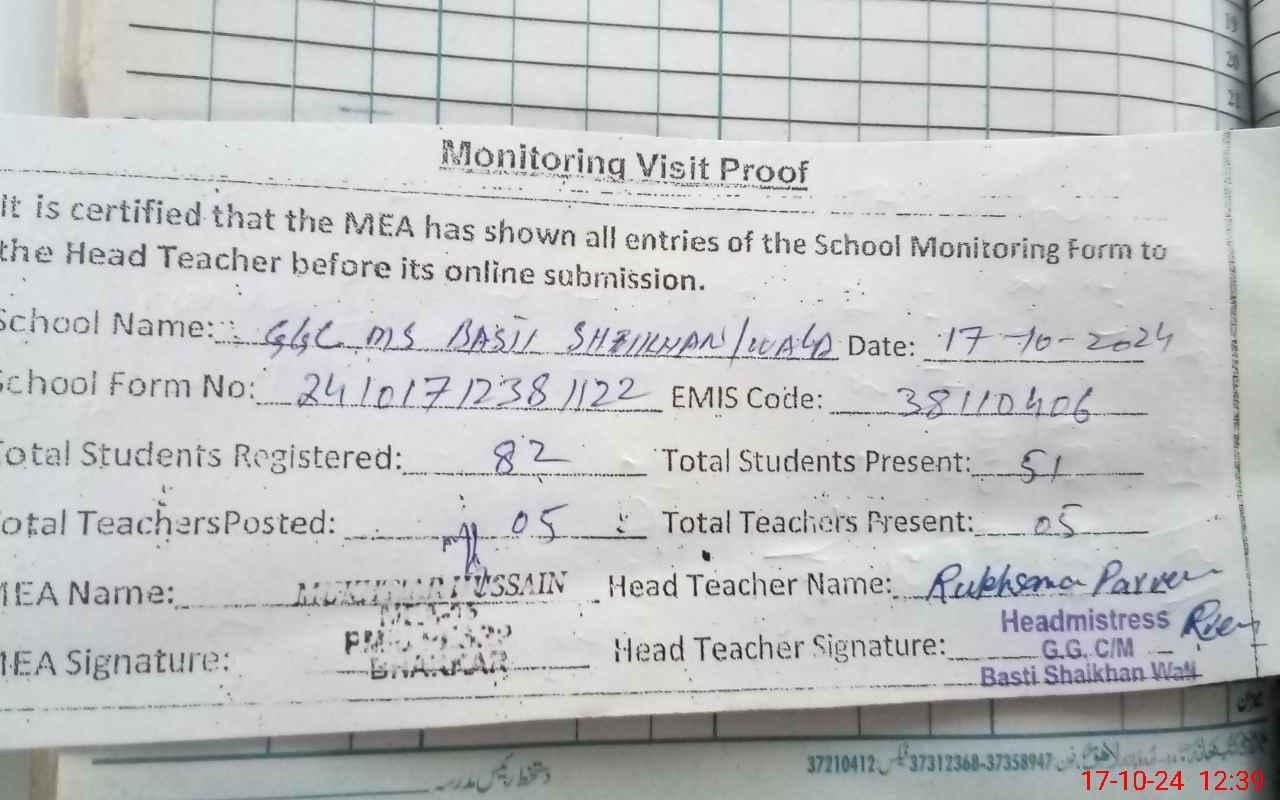 19
20
21
Monitoring Visit Proof
It is certified that the MEA has shown all entries of the School Monitoring Form to
the Head Teacher before its online submission.
School Name: GGC MS BASTI SHEIKHAN/WALA Date: 17-10-2024
School Form No: 24101712381122 EMIS Code: 38110406
Total Students Registered: 82 Total Students Present: 51
Total Teachers Posted: 05 Total Teachers Present: 05
MEA Name: MUKHTIAR HUSSAIN Head Teacher Name: Rukhsana Parveen
Headmistress
MEA Signature: BHAKKAR Head Teacher Signature: G.G. C/M
Basti Shaikhan Wali
37210412 فیکس 37312368-37358947
دستخط رئیس مدرسہ
17-10-24 12:39